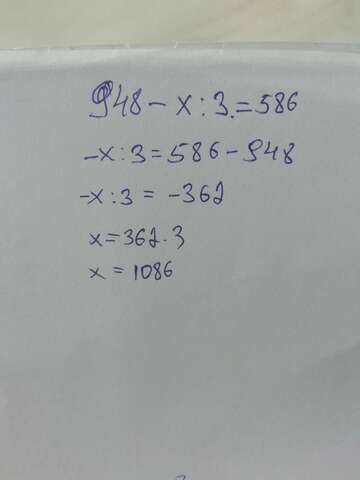 948 - x : 3 = 586
-x : 3 = 586 - 948
-x : 3 = -362
x = 362 · 3
x = 1086